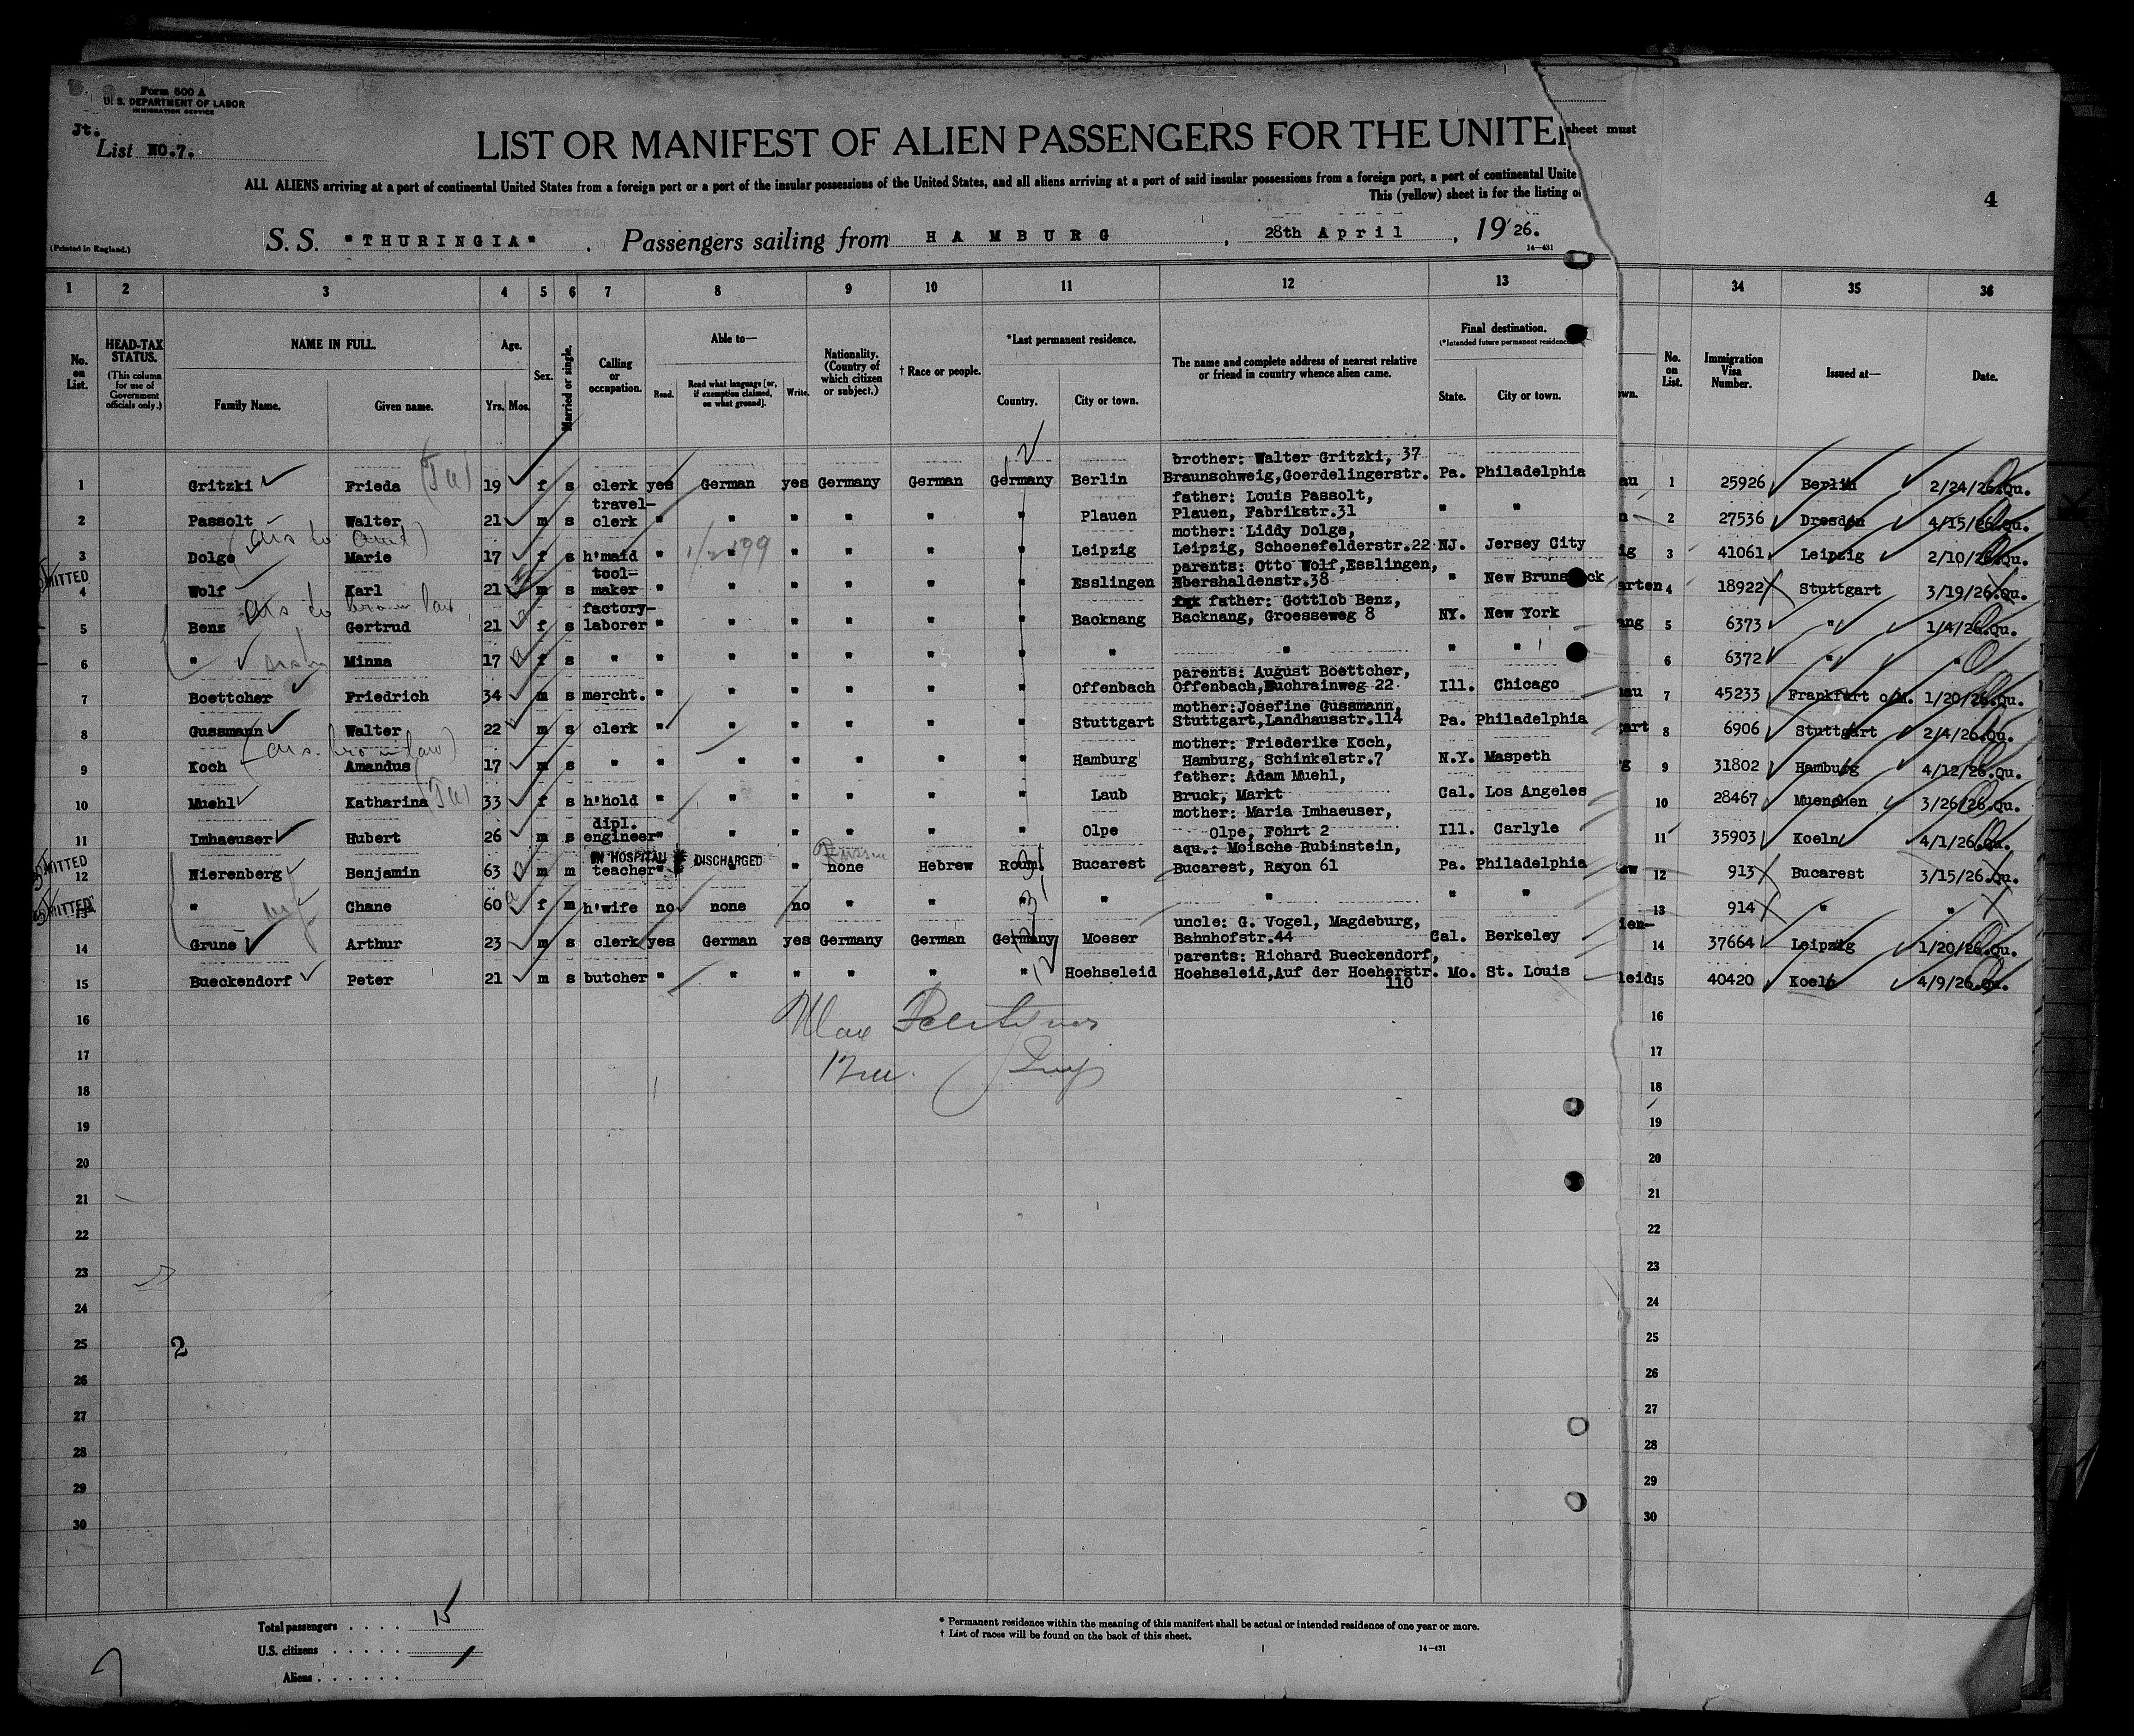 Form 500 A
U. S. DEPARTMENT OF LABOR
IMMIGRATION SERVICE
Jt.
List NO.7.
LIST OR MANIFEST OF ALIEN PASSENGERS FOR THE UNITE
sheet must
ALL ALIENS arriving at a port of continental United States from a foreign port or a port of the insular possessions of the United States, and all aliens arriving at a port of said insular possessions from a foreign port, a port of continental Unite
This (yellow) sheet is for the listing o
4
(Printed in England.)
S. S. "THURINGIA" . Passengers sailing from HAMBURG , 28th April , 19'26.
14—431
1 2 3 4 5 6 7 8 9 10 11 12 13 34 35 36
No. on List.
HEAD-TAX STATUS.
(This column for use of Government officials only.)
NAME IN FULL.
Family Name. Given name.
Age.
Yrs. Mos.
Sex.
Married or single.
Calling or occupation.
Able to—
Read. Read what language [or, if exemption claimed, on what ground]. Write.
Nationality. (Country of which citizen or subject.)
† Race or people.
*Last permanent residence.
Country. City or town.
The name and complete address of nearest relative or friend in country whence alien came.
Final destination.
(*Intended future permanent residence
State. City or town.
own.
No. on List.
Immigration Visa Number.
Issued at—
Date.
brother: Walter Gritzki, 37
1 Gritzki Frieda 19 f s clerk yes German yes Germany German Germany Berlin Braunschweig,Goerdelingerstr. Pa. Philadelphia au 1 25926 Berlin 2/24/26.Qu.
travel- father: Louis Passolt,
2 Passolt Walter 21 m s clerk " " " " " " Plauen Plauen, Fabrikstr.31 " " n 2 27536 Dresden 4/15/26.Qu.
mother: Liddy Dolge,
3 Dolge Marie 17 f s h'maid " " " " " " Leipzig Leipzig, Schoenefelderstr.22 NJ. Jersey City ig 3 41061 Leipzig 2/10/26.Qu.
MITTED tool- parents: Otto Wolf,Esslingen,
4 Wolf Karl 21 m s maker " " " " " " Esslingen Ebershaldenstr.38 " New Brunswick arten 4 18922 Stuttgart 3/19/26.Qu.
factory- father: Gottlob Benz,
5 Benz Gertrud 21 f s laborer " " " " " " Backnang Backnang, Groesseweg 8 NY. New York ang 5 6373 " 1/4/26.Qu.
6 " Minna 17 f s " " " " " " " " " " " 6 6372 " "
parents: August Boettcher,
7 Boettcher Friedrich 34 m s mercht. " " " " " " Offenbach Offenbach,Buchrainweg 22 Ill. Chicago au 7 45233 Frankfurt o/M. 1/20/26.Qu.
mother:Josefine Gussmann,
8 Gussmann Walter 22 m s clerk " " " " " " Stuttgart Stuttgart,Landhausstr.114 Pa. Philadelphia gart 8 6906 Stuttgart 2/4/26.Qu.
mother: Friederike Koch,
9 Koch Amandus 17 m s " " " " " " " Hamburg Hamburg, Schinkelstr.7 N.Y. Maspeth g 9 31802 Hamburg 4/12/26.Qu.
father: Adam Muehl,
10 Muehl Katharina 33 f s h'hold " " " " " " Laub Bruck, Markt Cal. Los Angeles 10 28467 Muenchen 3/26/26.Qu.
dipl. mother: Maria Imhaeuser,
11 Imhaeuser Hubert 26 m s engineer " " " " " " Olpe Olpe, Fohrt 2 Ill. Carlyle 11 35903 Koeln 4/1/26.Qu.
MITTED IN HOSPITAL DISCHARGED aqu.: Moische Rubinstein,
12 Nierenberg Benjamin 63 m m teacher " " " none Hebrew Roum. Bucarest Bucarest, Rayon 61 Pa. Philadelphia 12 913 Bucarest 3/15/26.Qu.
MITTED
13 " Chane 60 f m h'wife no none no " " " " " " " 13 914 " "
uncle: G. Vogel, Magdeburg,
14 Grune Arthur 23 m s clerk yes German yes Germany German Germany Moeser Bahnhofstr.44 Cal. Berkeley ien- 14 37664 Leipzig 1/20/26.Qu.
parents: Richard Bueckendorf,
15 Bueckendorf Peter 21 m s butcher " " " " " " Hoehseleid Hoehseleid,Auf der Hoeherstr. Mo. St. Louis leid 15 40420 Koeln 4/9/26.Qu.
110
16 16
17 17
18 18
19 19
20 20
21 21
22 22
23 23
24 24
25 2 25
26 26
27 27
28 28
29 29
30 30
Total passengers . . . . 15
U.S. citizens . . . . .
Aliens . . . . . .
* Permanent residence within the meaning of this manifest shall be actual or intended residence of one year or more.
† List of races will be found on the back of this sheet.
14—431